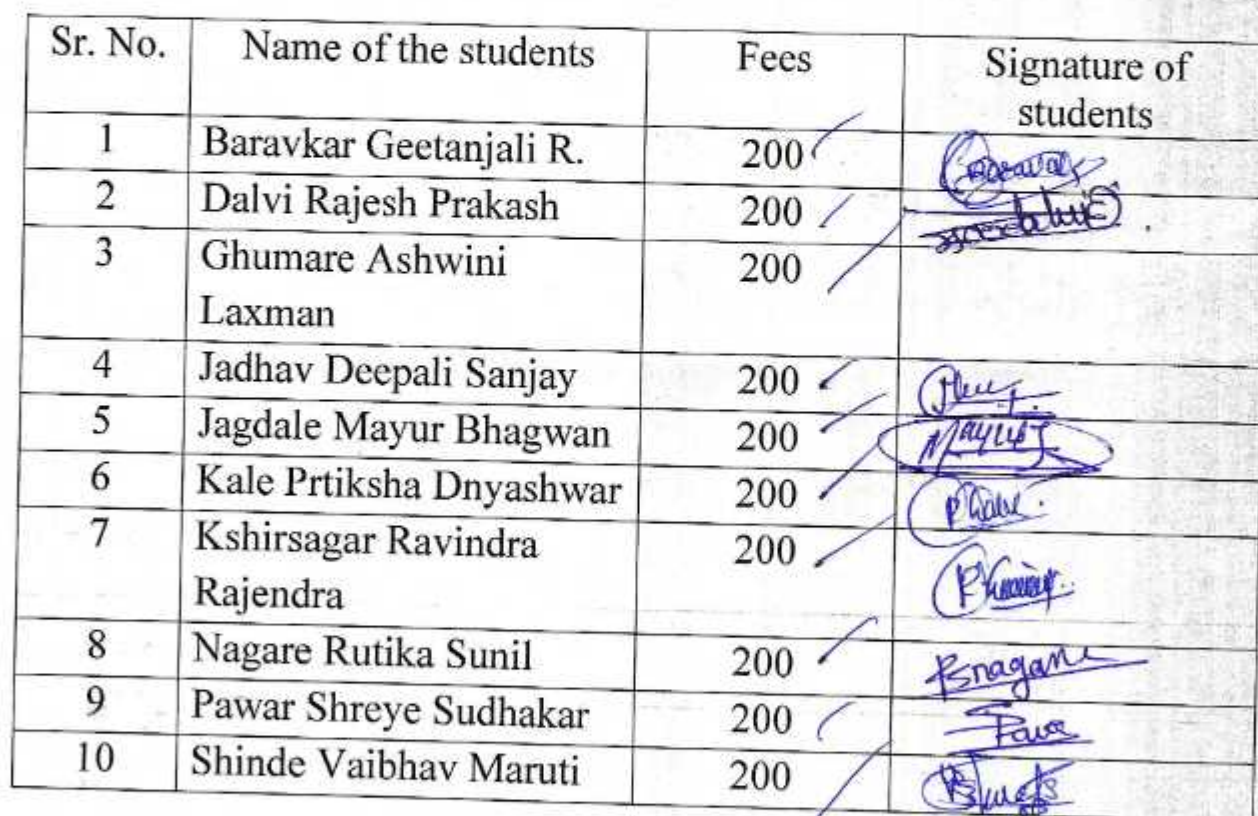 Sr. No. Name of the students Fees Signature of
students
1 Baravkar Geetanjali R. 200
2 Dalvi Rajesh Prakash 200
3 Ghumare Ashwini 200
Laxman
4 Jadhav Deepali Sanjay 200
5 Jagdale Mayur Bhagwan 200
6 Kale Prtiksha Dnyashwar 200
7 Kshirsagar Ravindra 200
Rajendra
8 Nagare Rutika Sunil 200
9 Pawar Shreye Sudhakar 200
10 Shinde Vaibhav Maruti 200